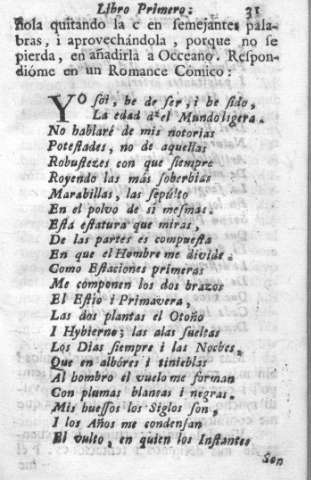 Libro Primero: 31
ñola quitando la c en semejantes pala-
bras, i aprovechándola, porque no se
pierda, en añadirla a Occeano. Respon-
dióme en un Romance Cómico:
YO soi, he de ser, i he sido,
La edad d'el Mundo ligera.
No hablaré de mis notorias
Potestades, no de aquellas
Robustezes con que siempre
Royendo las más soberbias
Marabillas, las sepúlto
En el polvo de sí mesmas.
Esta estatura que miras,
De las partes es compuesta
En que el Hombre me divide.
Como Estaciones primeras
Me componen los dos brazos
El Estío i Primavera,
Las dos plantas el Otoño
I Hybierno; las alas sueltas
Los Dias siempre i las Noches,
Que en albóres i tinieblas
Al hombro el vuelo me forman
Con plumas blancas i negras.
Mis huessos los Siglos son,
I los Años me condensan
El vulto, en quien los Instantes
Son